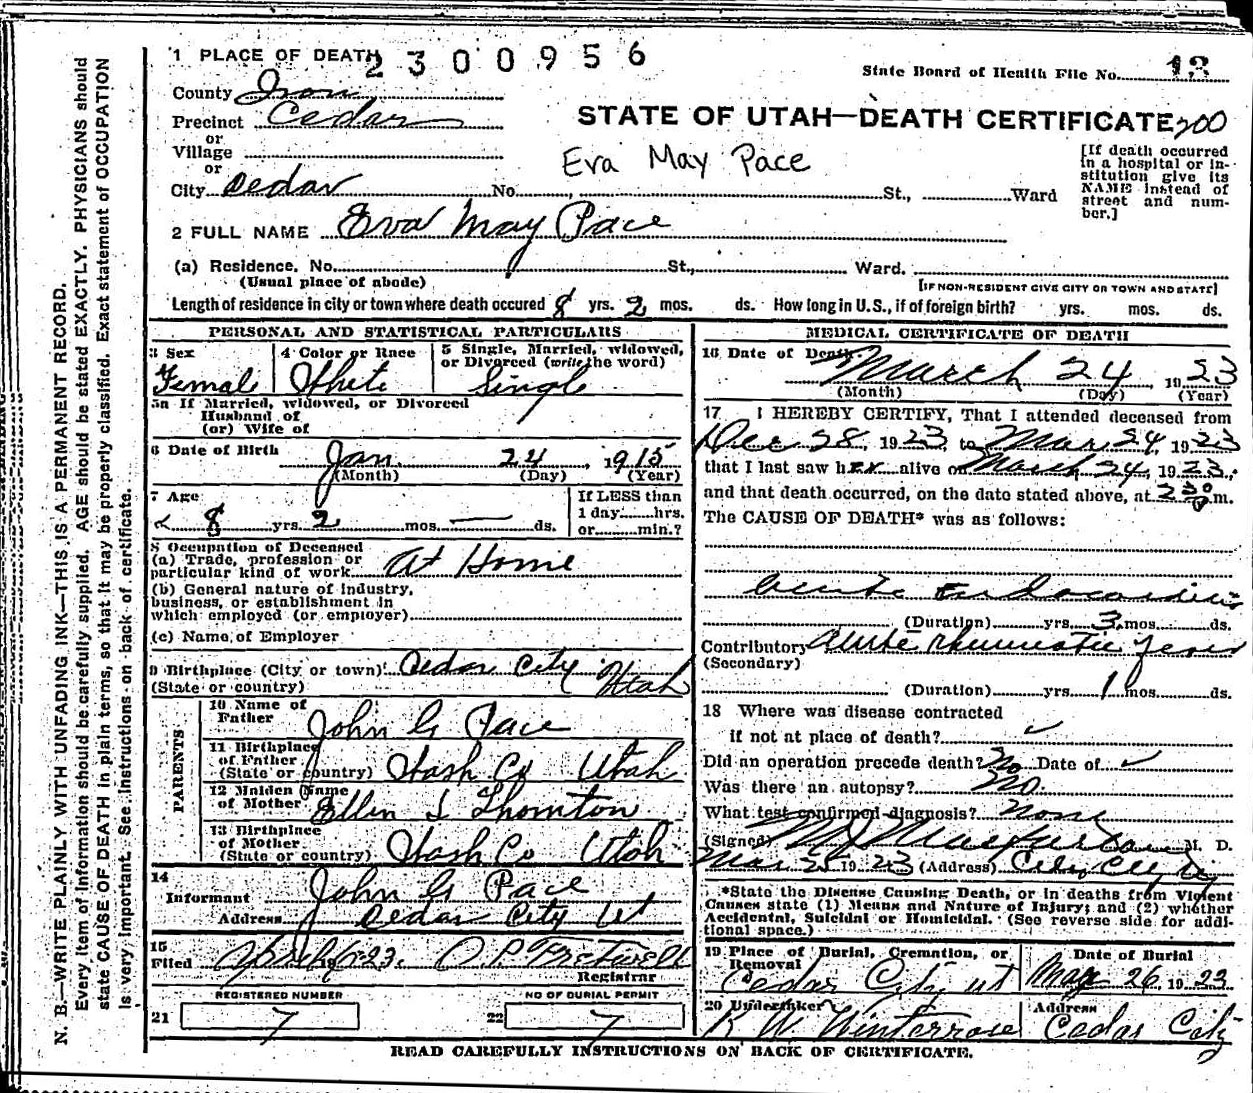 1 PLACE OF DEATH 2300956
State Board of Health File No. 13
County Iron
Precinct Cedar
or
Village
or
City Cedar No. St., Ward
STATE OF UTAH—DEATH CERTIFICATE 200
Eva May Pace
[If death occurred
in a hospital or in-
stitution give its
NAME instead of
street and num-
ber.]
2 FULL NAME Eva May Pace
(a) Residence. No. St., Ward.
(Usual place of abode) [IF NON-RESIDENT GIVE CITY OR TOWN AND STATE]
Length of residence in city or town where death occured 8 yrs. 2 mos. ds. How long in U.S., if of foreign birth? yrs. mos. ds.
PERSONAL AND STATISTICAL PARTICULARS
3 Sex 4 Color or Race 5 Single, Married, widowed,
or Divorced (write the word)
Female White Single
5a If Married, widowed, or Divorced
Husband of
(or) Wife of
6 Date of Birth Jan 24, 1915
(Month) (Day) (Year)
7 Age If LESS than
8 yrs. 2 mos. — ds. 1 day hrs.
or min.?
8 Occupation of Deceased
(a) Trade, profession or
particular kind of work At Home
(b) General nature of industry,
business, or establishment in
which employed (or employer)
(c) Name of Employer
9 Birthplace (City or town) Cedar City
(State or country) Utah
PARENTS
10 Name of
Father John G Pace
11 Birthplace
of Father
(State or country) Wash Co Utah
12 Maiden Name
of Mother Ellen I Thornton
13 Birthplace
of Mother
(State or country) Wash Co Utah
14
Informant John G Pace
Address Cedar City Ut
15
Filed April 1923.
Registrar
REGISTERED NUMBER NO OF BURIAL PERMIT
21 7 22 7
MEDICAL CERTIFICATE OF DEATH
16 Date of Death March 24, 1923
(Month) (Day) (Year)
17 I HEREBY CERTIFY, That I attended deceased from
Dec 28, 1923, to Mar 24, 1923
that I last saw her alive on March 24, 1923.
and that death occurred, on the date stated above, at 230 p m.
The CAUSE OF DEATH* was as follows:
Acute Endocarditis
(Duration) yrs. 3 mos. ds.
Contributory Acute Rheumatic Fever
(Secondary)
(Duration) yrs. 1 mos. ds.
18 Where was disease contracted
if not at place of death? ✓
Did an operation precede death? No Date of ✓
Was there an autopsy? No.
What test confirmed diagnosis? None
(Signed) M J Macfarlane M. D.
Mar 25 1923 (Address)
*State the Disease Causing Death, or in deaths from Violent
Causes state (1) Means and Nature of Injury; and (2) whether
Accidental, Suicidal or Homicidal. (See reverse side for addi-
tional space.)
19 Place of Burial, Cremation, or Date of Burial
Removal
Cedar City Ut Mar 26 1923
20 Undertaker Address
Winterrose Cedar City
READ CAREFULLY INSTRUCTIONS ON BACK OF CERTIFICATE.
N. B.—WRITE PLAINLY WITH UNFADING INK—THIS IS A PERMANENT RECORD.
Every item of information should be carefully supplied. AGE should be stated EXACTLY. PHYSICIANS should
state CAUSE OF DEATH in plain terms, so that it may be properly classified. Exact statement of OCCUPATION
is very important. See instructions on back of certificate.